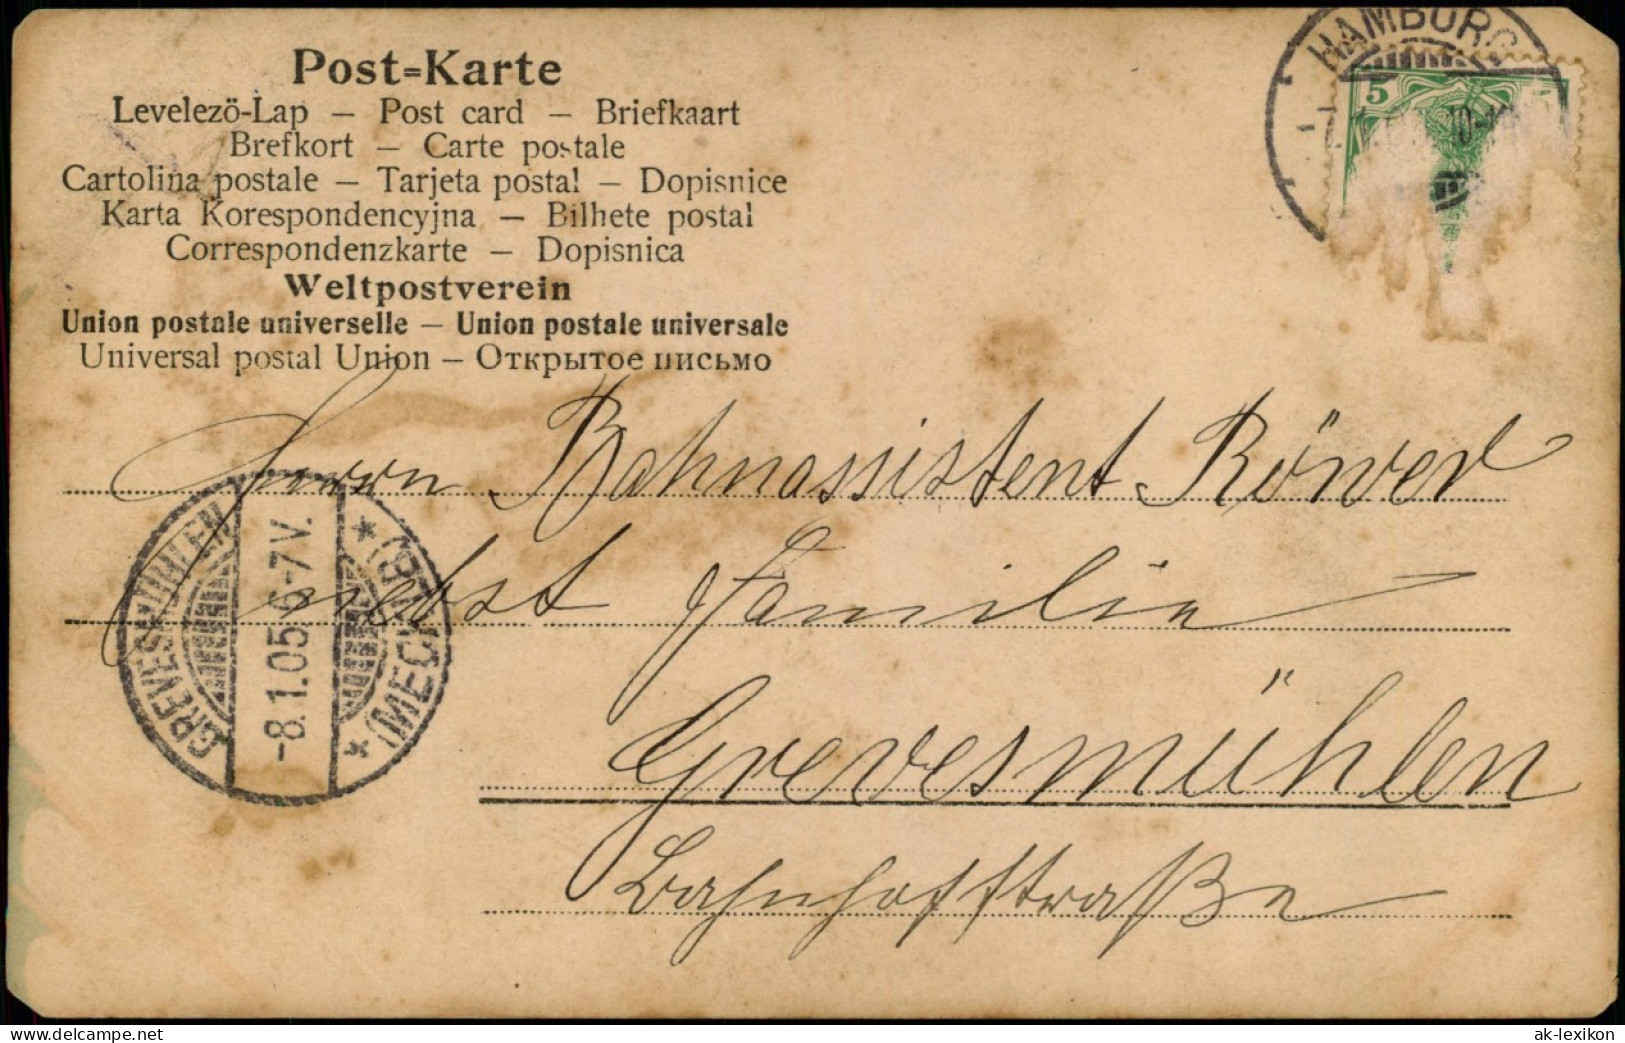 Post=Karte
Levelezö-Lap – Post card – Briefkaart
Brefkort – Carte postale
Cartolina postale – Tarjeta postal – Dopisnice
Karta Korespondencyjna – Bilhete postal
Correspondenzkarte – Dopisnica
Weltpostverein
Union postale universelle – Union postale universale
Universal postal Union – Открытое письмо
HAMBURG
5
Herrn Bahnassistent Röwer
nebst Familie
Grevesmühlen
Bahnhofstraße
GREVESMÜHLEN
-8.1.05.6-7V.
* (MECKLB) *
www.delcampe.net
ak-lexikon